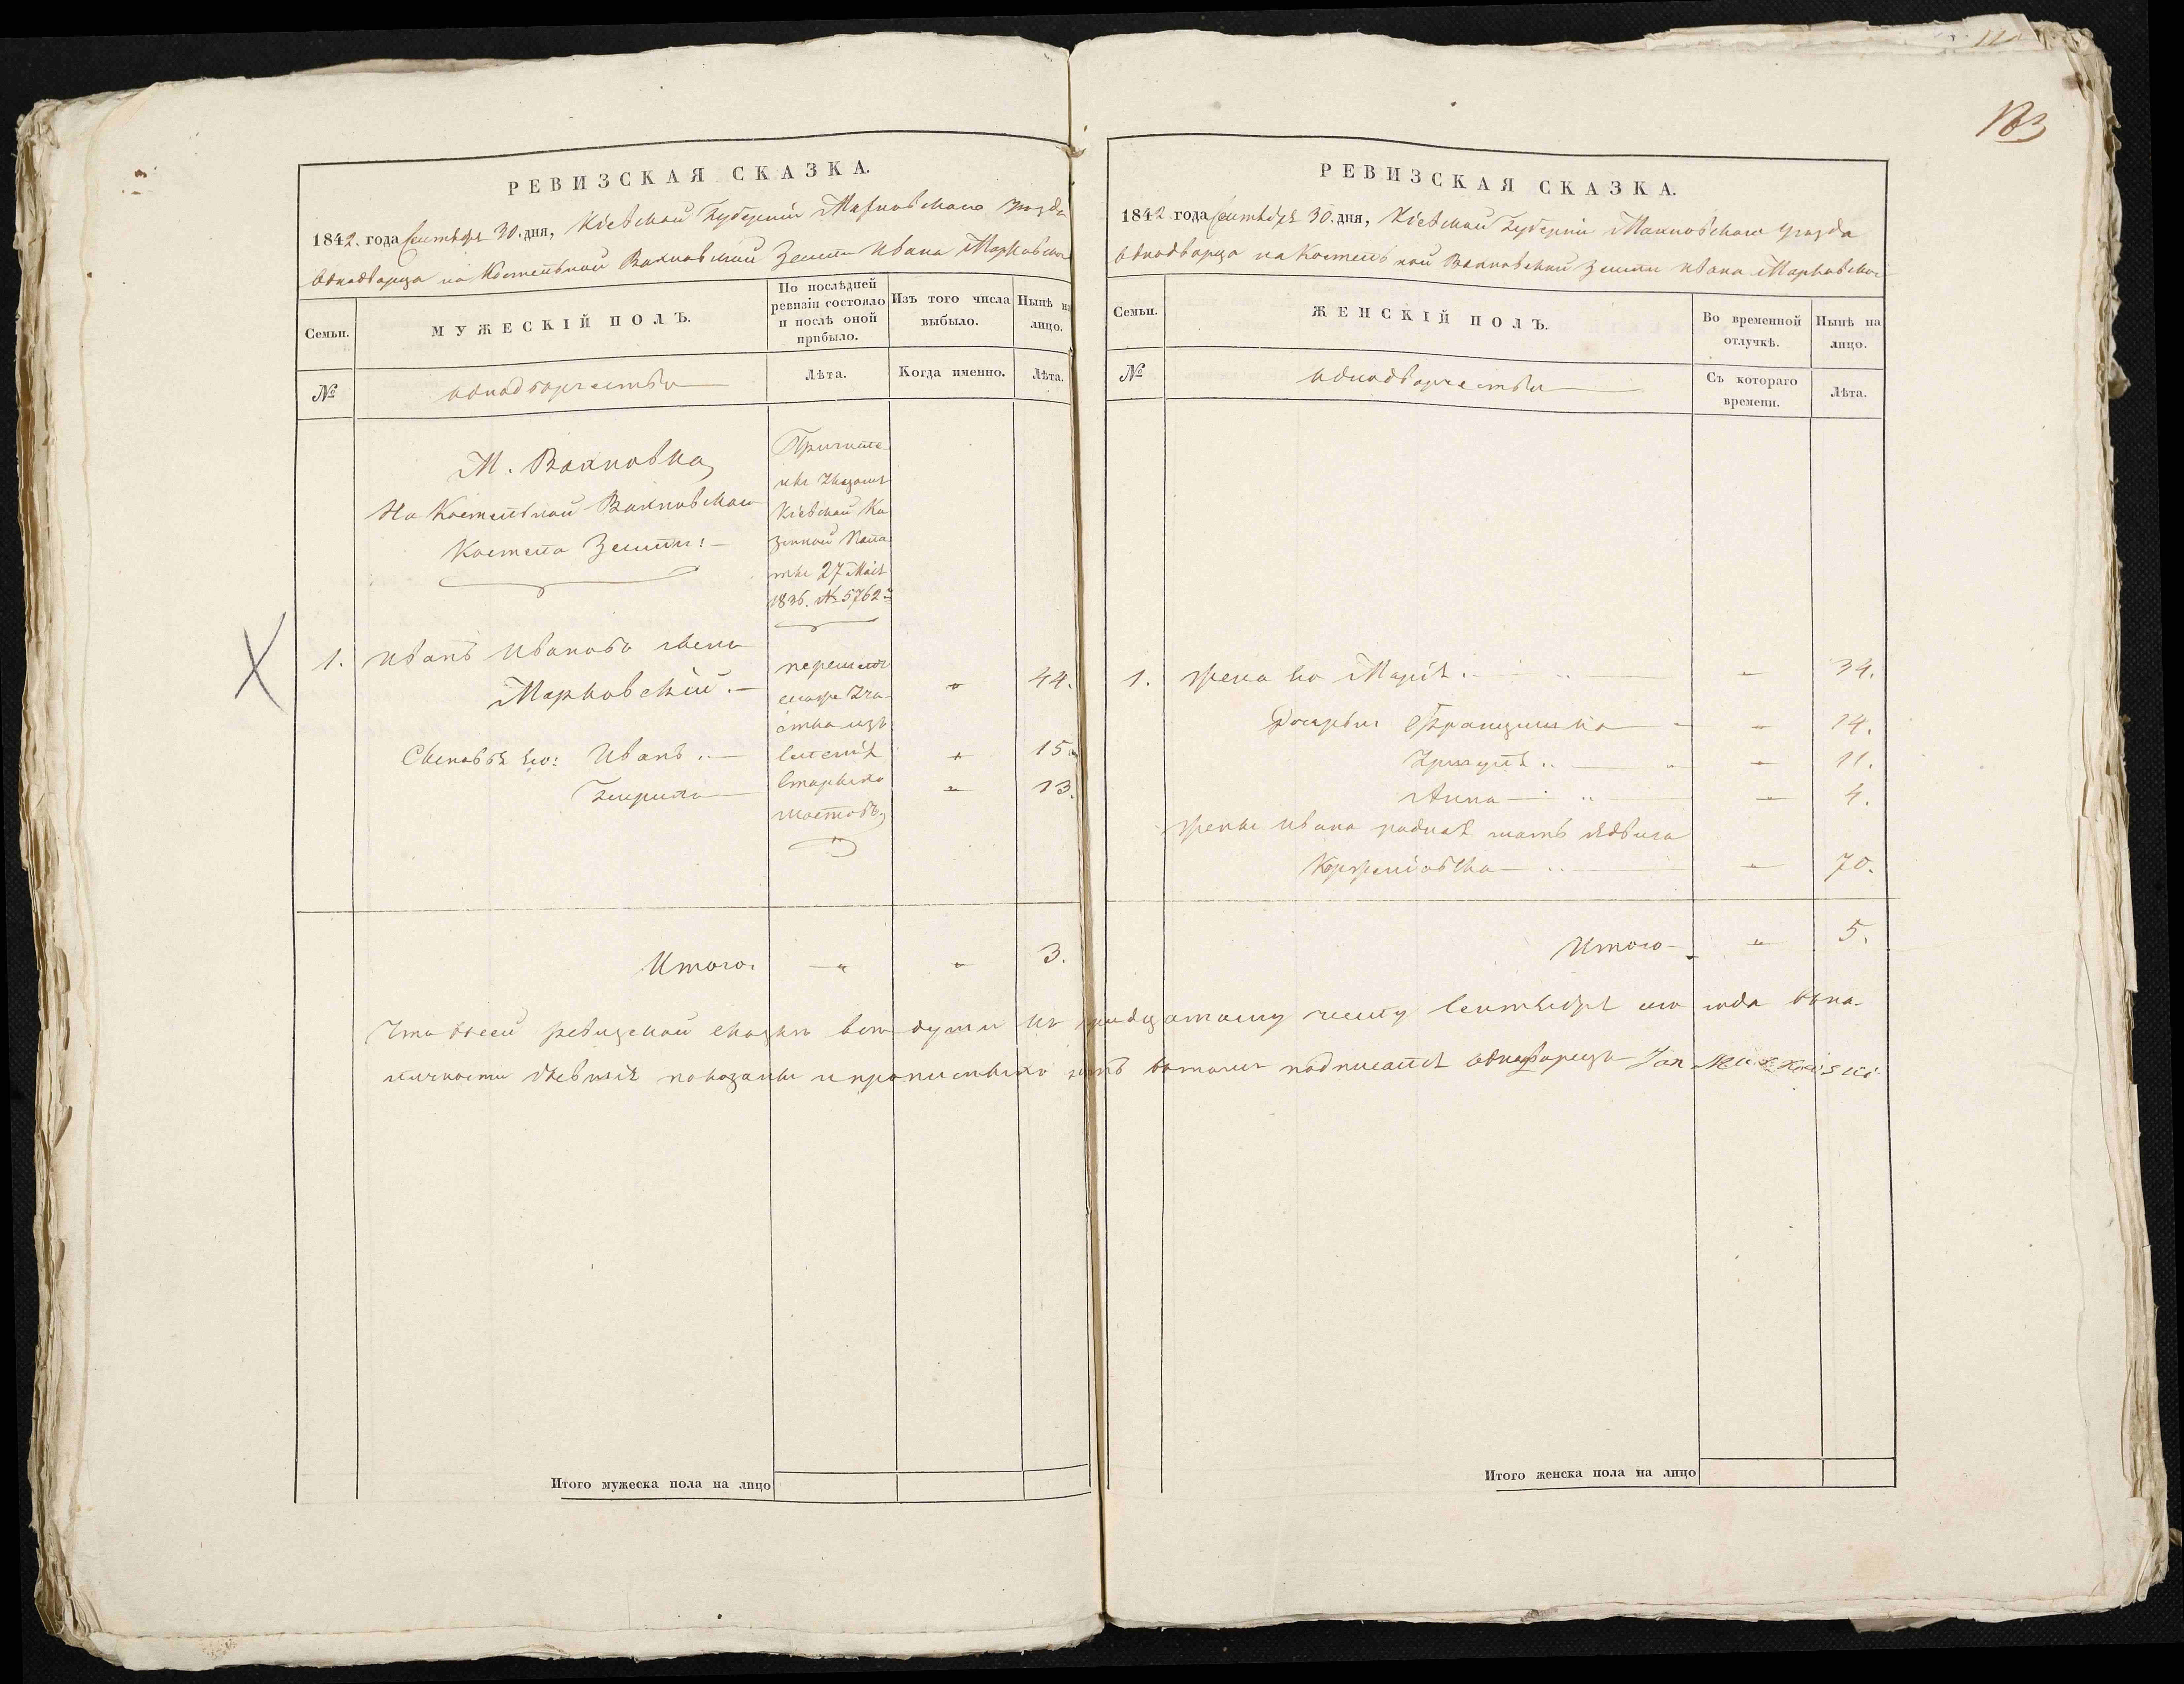 183
РЕВИЗСКАЯ СКАЗКА.
1842. года Сентября 30. дня, Кіевской Губерніи Махновскаго уезда
Однодворца на Костельной Вахновской Земли Ивана Марковскаго
Семьи.
МУЖЕСКІЙ ПОЛЪ.
По послѣдней
ревизіи состояло
и послѣ оной
прибыло.
Изъ того числа
выбыло.
Нынѣ на
лицо.
№
однодворчества
Лѣта.
Когда именно.
Лѣта.
М. Вахновка
На Костельной Вахновскаго
Костела Земли:
Причисле
ны Указомъ
Кіевской Ка
зенной Пала
ты 27 Маія
1836. № 5762
1. Иванъ Ивановъ сынъ
Марковскій. — 44.
Сыновья его: Иванъ — 15.
— 13.
Итого. — 3.
РЕВИЗСКАЯ СКАЗКА.
1842 года Сентября 30. дня, Кіевской Губерніи Махновскаго уезда
Однодворца на Костельной Вахновской Земли Ивана Марковскаго
Семьи.
ЖЕНСКІЙ ПОЛЪ.
Во временной
отлучкѣ.
Нынѣ на
лицо.
№
однодворчества
Съ котораго
времени.
Лѣта.
1. Жена его Марія — 34.
Дочери Францишка — 14.
— 11.
Анна — 4.
Жены Ивана родная мать Ядвига
— 70.
Итого — 5.
Что въ сей ревизской сказке все души къ тридцатому числу Сентября сего года въ на-
личности бывшія показаны и прописныхъ нетъ въ томъ подписался однодворецъ Jan
Итого мужеска пола на лицо
Итого женска пола на лицо